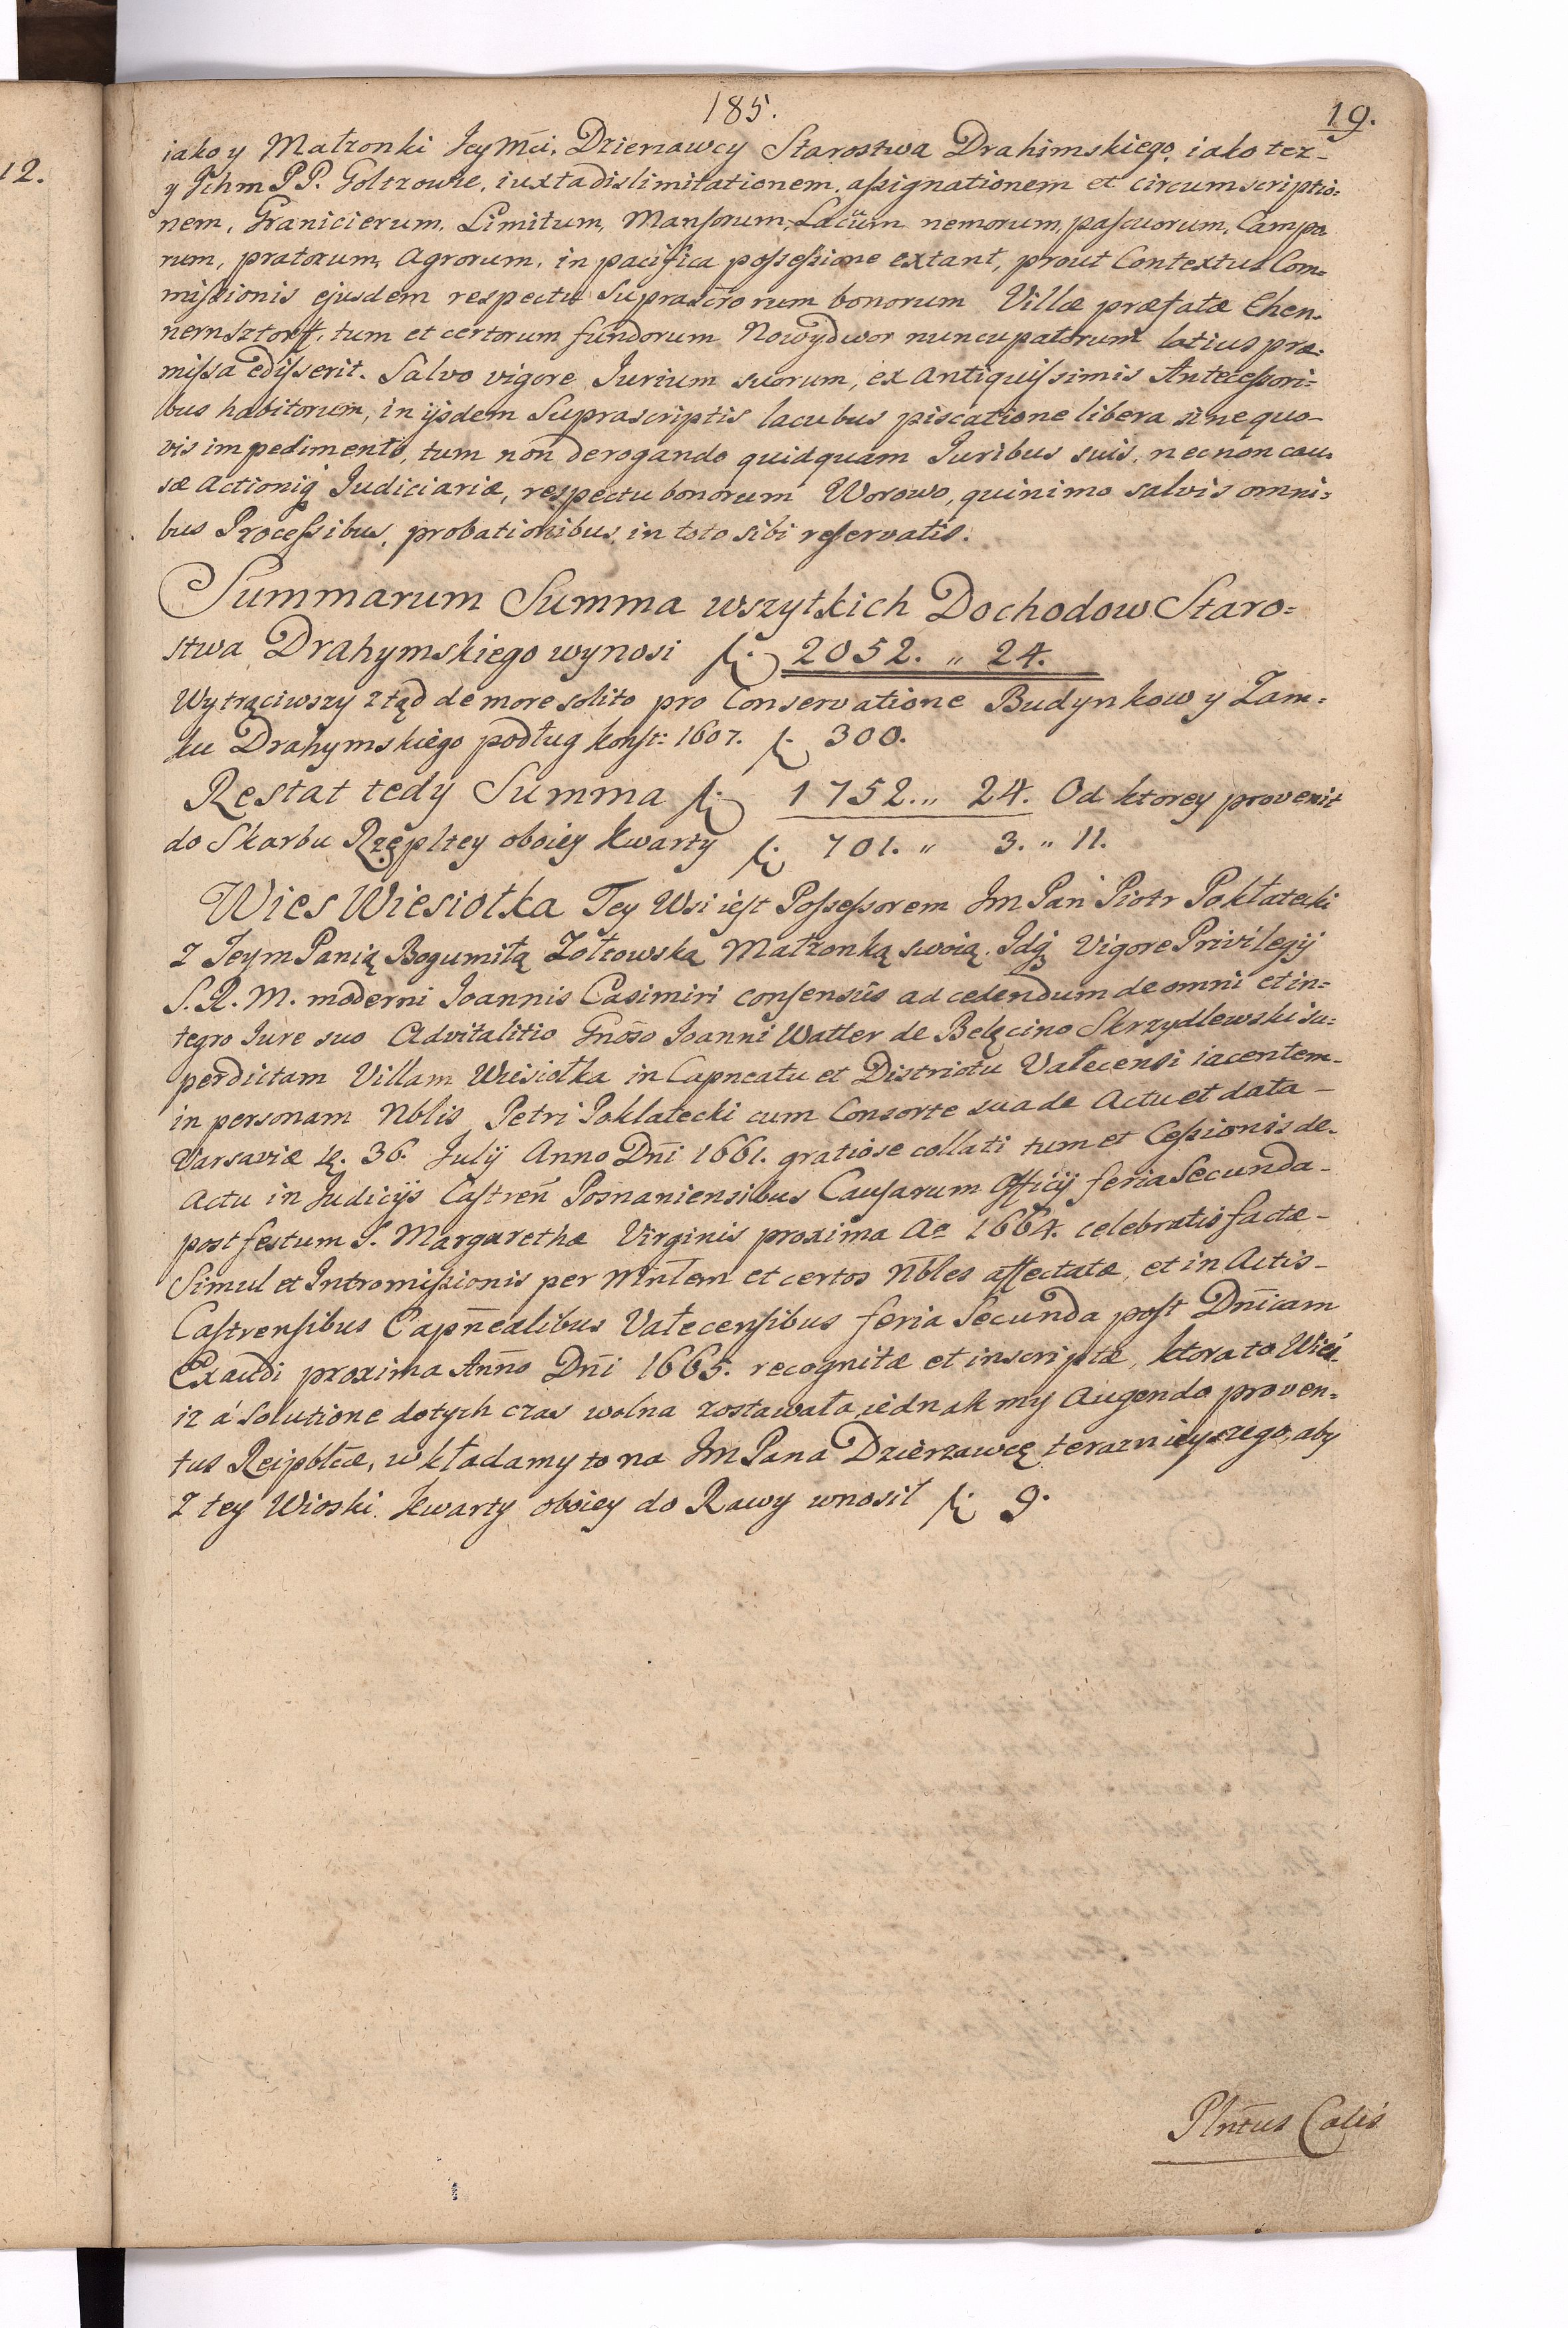 12.
185.
19.
iako y Małzonki Jey Mći, Dzierzawcy Starostwa Drahimskiego, iako tez-
y Ichm PP. Goltzowie, iuxta dislimitationem, assignationem et circumscriptio=
nem, Granicierum, Limitum, Mansorum, Lacũum nemorum, pascuorum, Campo
rum, pratorum, Agrorum, in pacifica possessione extant, prout Contextus Com=
missionis ejusdem respectu Suprascr̃orum bonorum Villæ præfatæ Ehen=
nernsztorff, tum et certorum fundorum Nowydwor nuncupatorum latius præ=
missa edisserit. Salvo vigore Jurium suorum, ex Antiquissimis Antecessori=
bus habitorum, in ijsdem Suprascriptis lacubus piscatione libera sine quo-
vis impedimento, tum non derogando quidquam Juribus suis, necnon cau=
sæ Actioniq Judiciariæ, respectu bonorum Worowo, quinimo salvis omni=
bus Processibus, probationibus, in toto sibi reservatis.
Summarum Summa wszytkich Dochodow Staro=
stwa Drahymskiego wynosi fl: 2052. " 24.
Wytrąciwszy ztąd de more solito pro Conservatione Budynkow y Zam=
ku Drahymskiego podług Konst: 1607. fl: 300.
Restat tedy Summa fl: 1752. " 24. Od ktorey provenit
do Skarbu Rzepltey oboiey Kwarty fl: 701. " 3. " 11.
Wies Wiesiołka Tey Wsi iest Possessorem Jm Pan Piotr Pokłatecki
z Jeym Panią Bogumiłą Zołtowską Małzonką swoią. Idq́ Vigore Privilegij
S. R. M. moderni Joannis Casimiri consensûs ad cedendum de omni et in=
tegro Jure suo Advitalitio Gnõso Joanni Watter de Belęcino Skrzydlewski su=
perdictam Villam Wiesiołka in Capneatu et Districtu Valecensi iacentem-
in personam Nblis Petri Poklatecki cum Consorte sua de Actu et data-
Varsaviæ 36. Julij Anno Dñi 1661. gratiose collati tum et Cessionis de=
Actu in Judicijs Castreñ Posnaniensibus Causarum Officij feria Secunda-
post festum S. Margarethæ Virginis proxima Ao 1664. celebratis factæ-
Simul et Intromissionis per Mrtlem et certos Nbles affectatæ, et in Actis-
Castrensibus Capñealibus Valecensibus feria Secunda post Dñicam
Exaudi proxima Añno Dñi 1665. recognitæ et inscriptæ, ktora to Wieś
iz á Solutione dotych czas wolna zostawała, iednak my Augendo proven=
tus Reipblcæ, wkładamy to na Jm Pana Dzierzawcę teraznieyszego, aby
z tey Wioski Kwarty oboiey do Rawy wnosił fl: 9.
Plntus Calis